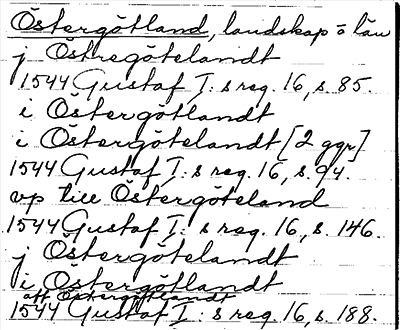 Östergötland, landskap o län
j Östregötelandt
1544 Gustaf I: s reg. 16, s. 85.
i Östergötlandt
i Östergötelandt [2 ggr]
1544 Gustaf I: s reg. 16, s. 94.
vp till Östergöteland
1544 Gustaf I: s reg. 16, s. 146.
j Östergötelandt
i Östergötlandt
att Östergötlandt
1544 Gustaf I: s reg. 16, s. 188.